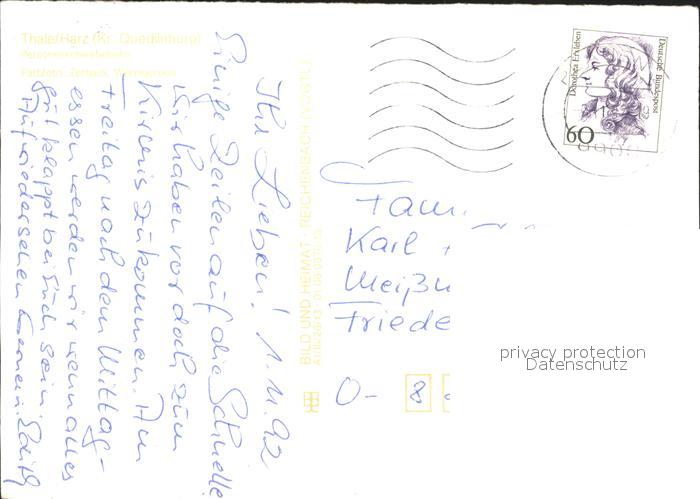 Thale/Harz (Kr. Quedlinburg)
Personenschwebebahn
BILD UND HEIMAT · REICHENBACH (VOGTL)
Ihr Lieben! 1.11.92
Einige Zeilen auf die Schnelle
wir haben vor doch zum
Kirmis zu kommen. Am
Freitag nach dem Mittag-
essen werden wir wenn alles
gut klappt bei Euch sein.
Auf wiedersehen
Fam.
Karl
Meißn
Friede
O- 8
Deutsche Bundespost
Dorothea Erxleben
60
privacy protection
Datenschutz